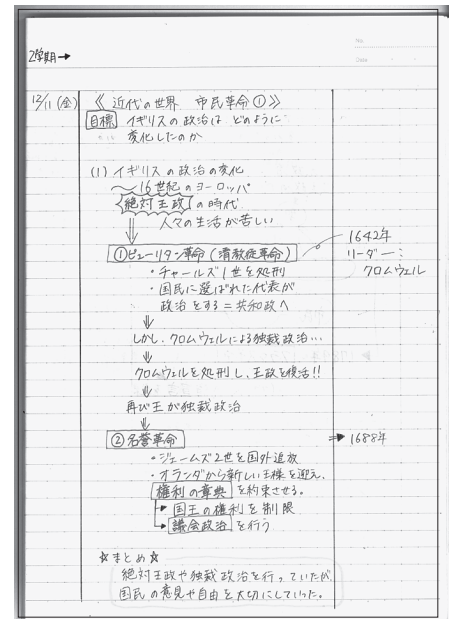 No.
Date
2学期→
12/11(金)
《近代の世界 市民革命①》
目標 イギリスの政治は どのように
変化したのか
(1) イギリスの政治の変化
〜16世紀のヨーロッパ
絶対王政の時代
人々の生活が苦しい
①ピューリタン革命(清教徒革命)
1642年
リーダー…
クロムウェル
・チャールズ1世を処刑
・国民に選ばれた代表が
政治をする=共和政へ
しかし、クロムウェルによる独裁政治…
クロムウェルを処刑し、王政を復活!!
再び王が独裁政治
②名誉革命
→1688年
・ジェームズ2世を国外追放
・オランダから新しい王様を迎え、
権利の章典を約束させる。
→国王の権利を制限
→議会政治を行う
☆まとめ☆
絶対王政や独裁政治を行っていたが
国民の意見や自由を大切にしていった。